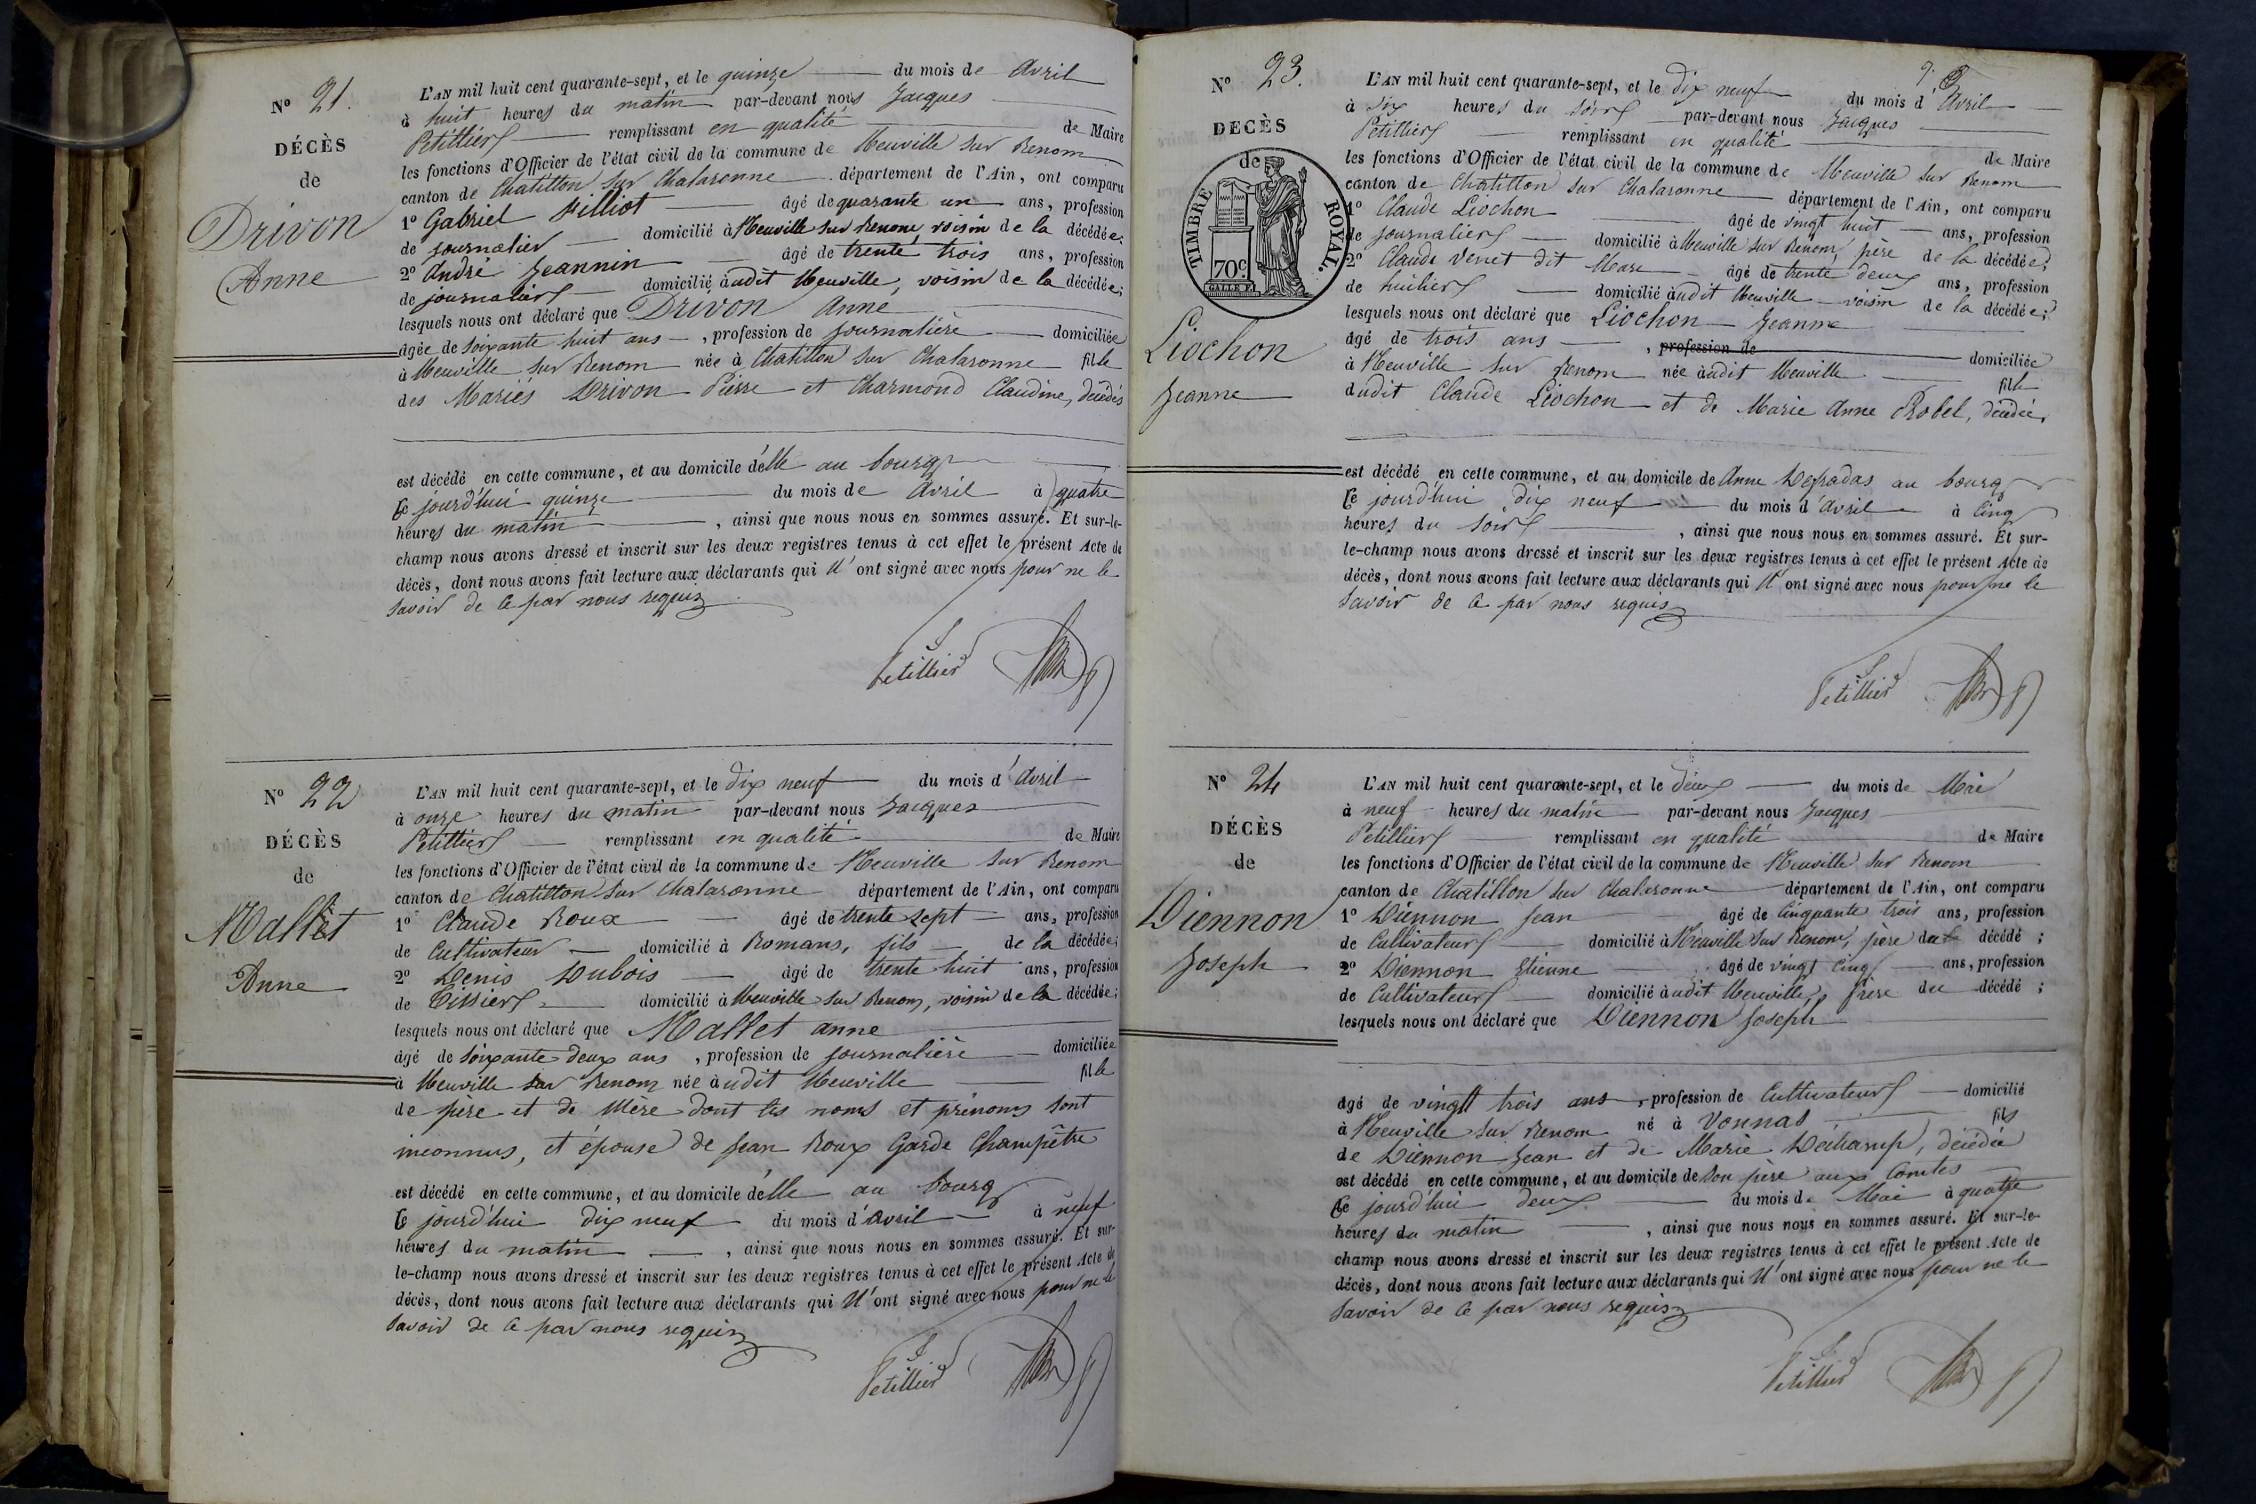 N° 21.
DÉCÈS
de
Drivon
Anne
L'AN mil huit cent quarante-sept, et le quinze du mois de Avril
à huit heures du matin par-devant nous Jacques
Petillier remplissant en qualité de Maire
les fonctions d'Officier de l'état civil de la commune de Neuville sur Renom
canton de Chatillon sur Chalaronne département de l'Ain, ont comparu
1° Gabriel Filliot âgé de quarante un ans, profession
de journalier domicilié à Neuville sur Renom, voisin de la décédée;
2° André Jeannin âgé de trente trois ans, profession
de journalier domicilié audit Neuville, voisin de la décédée;
lesquels nous ont déclaré que Drivon Anne
âgée de soixante huit ans, profession de journalière domiciliée
à Neuville sur Renom née à Chatillon sur Chalaronne fille
des Mariés Drivon Pierre et Charmond Claudine, décédés
est décédé en cette commune, et au domicile d'elle au bourg
Ce jourd'hui quinze du mois de Avril à quatre
heures du matin, ainsi que nous nous en sommes assuré. Et sur-le-
champ nous avons dressé et inscrit sur les deux registres tenus à cet effet le présent Acte de
décès, dont nous avons fait lecture aux déclarants qui N'ont signé avec nous pour ne le
savoir de ce par nous requis
Petillier
N° 22
DÉCÈS
de
Mallet
Anne
L'AN mil huit cent quarante-sept, et le dix neuf du mois d'Avril
à onze heures du matin par-devant nous Jacques
Petillier remplissant en qualité de Maire
les fonctions d'Officier de l'état civil de la commune de Neuville sur Renom
canton de Chatillon sur Chalaronne département de l'Ain, ont comparu
1° Claude Roux âgé de trente sept ans, profession
de Cultivateur domicilié à Romans, fils de la décédée;
2° Denis Dubois âgé de trente huit ans, profession
de Tissier domicilié à Neuville sur Renom, voisin de la décédée;
lesquels nous ont déclaré que Mallet anne
âgé de soixante deux ans, profession de journalière domiciliée
à Neuville sur Renom née audit Neuville fille
de père et de Mère dont les noms et prénoms sont
inconnus, et épouse de Jean Roux Garde Champêtre
est décédé en cette commune, et au domicile d'elle au bourg
Ce jourd'hui dix neuf du mois d'Avril à neuf
heures du matin, ainsi que nous nous en sommes assuré. Et sur-
le-champ nous avons dressé et inscrit sur les deux registres tenus à cet effet le présent Acte de
décès, dont nous avons fait lecture aux déclarants qui N'ont signé avec nous pour ne le
savoir de ce par nous requis
Petillier
N° 23.
DECÈS
de
TIMBRE ROYAL.
70c.
Liochon
Jeanne
L'AN mil huit cent quarante-sept, et le dix neuf du mois d'Avril
à six heures du soir par-devant nous Jacques
Petillier remplissant en qualité de Maire
les fonctions d'Officier de l'état civil de la commune de Neuville sur Renom
canton de Chatillon sur Chalaronne département de l'Ain, ont comparu
1° Claude Liochon âgé de vingt huit ans, profession
de journalier domicilié à Neuville sur Renom, père de la décédée;
2° Claude Venet dit Mare âgé de trente deux ans, profession
de huilier domicilié audit Neuville voisin de la décédée;
lesquels nous ont déclaré que Liochon Jeanne
âgé de trois ans, profession de domiciliée
à Neuville sur Renom née audit Neuville fille
dudit Claude Liochon et de Marie Anne Probel, décédée,
est décédé en cette commune, et au domicile de Anne Desradas au bourg
Ce jourd'hui dix neuf du mois d'Avril à Cinq
heures du soir, ainsi que nous nous en sommes assuré. Et sur-
le-champ nous avons dressé et inscrit sur les deux registres tenus à cet effet le présent Acte de
décès, dont nous avons fait lecture aux déclarants qui N'ont signé avec nous pour ne le
savoir de ce par nous requis
Petillier
N° 24
DÉCÈS
de
Diennon
Joseph
L'AN mil huit cent quarante-sept, et le deux du mois de Mai
à neuf heures du matin par-devant nous Jacques
Petillier remplissant en qualité de Maire
les fonctions d'Officier de l'état civil de la commune de Neuville sur Renom
canton de Chatillon sur Chalaronne département de l'Ain, ont comparu
1° Diennon Jean âgé de Cinquante trois ans, profession
de Cultivateur domicilié à Neuville sur Renom, père du décédé;
2° Diennon Etienne âgé de vingt Cinq ans, profession
de Cultivateur domicilié audit Neuville, frère du décédé;
lesquels nous ont déclaré que Diennon Joseph
âgé de vingt trois ans, profession de Cultivateur domicilié
à Neuville sur Renom né à Vonnas fils
de Diennon Jean et de Marie Déchamp, décédée
est décédé en cette commune, et au domicile de son père aux Comtes
Ce jourd'hui deux du mois de Mai à quatre
heures du matin, ainsi que nous nous en sommes assuré. Et sur-le-
champ nous avons dressé et inscrit sur les deux registres tenus à cet effet le présent Acte de
décès, dont nous avons fait lecture aux déclarants qui N'ont signé avec nous pour ne le
savoir de ce par nous requis
Petillier